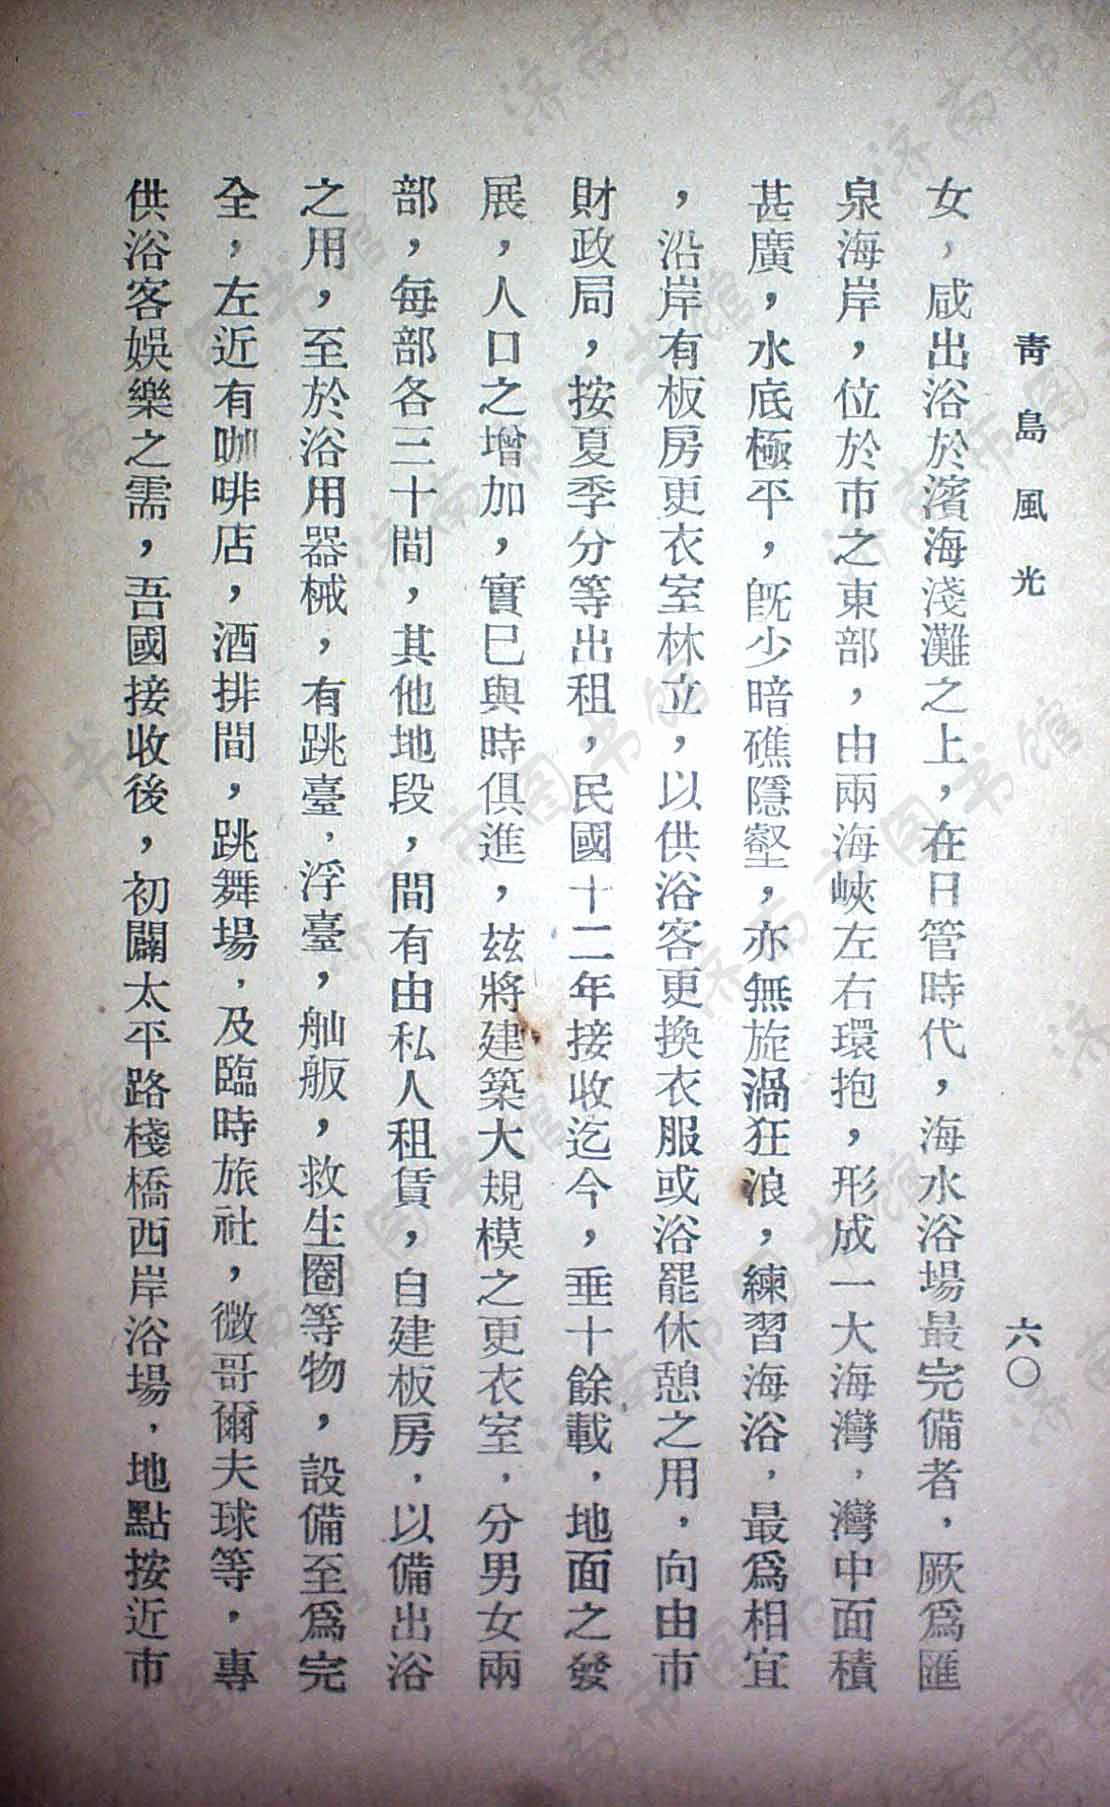 青島風光
六〇
女，咸出浴於濱海淺灘之上，在日管時代，海水浴場最完備者，厥爲匯
泉海岸，位於市之東部，由兩海峽左右環抱，形成一大海灣，灣中面積
甚廣，水底極平，既少暗礁隱壑，亦無旋渦狂浪，練習海浴，最爲相宜
，沿岸有板房更衣室林立，以供浴客更換衣服或浴罷休憩之用，向由市
財政局，按夏季分等出租，民國十二年接收迄今，垂十餘載，地面之發
展，人口之增加，實已與時俱進，玆將建築大規模之更衣室，分男女兩
部，每部各三十間，其他地段，間有由私人租賃，自建板房，以備出浴
之用，至於浴用器械，有跳臺，浮臺，舢舨，救生圈等物，設備至爲完
全，左近有咖啡店，酒排間，跳舞場，及臨時旅社，微哥爾夫球等，專
供浴客娛樂之需，吾國接收後，初闢太平路棧橋西岸浴場，地點按近市
济南市图书馆